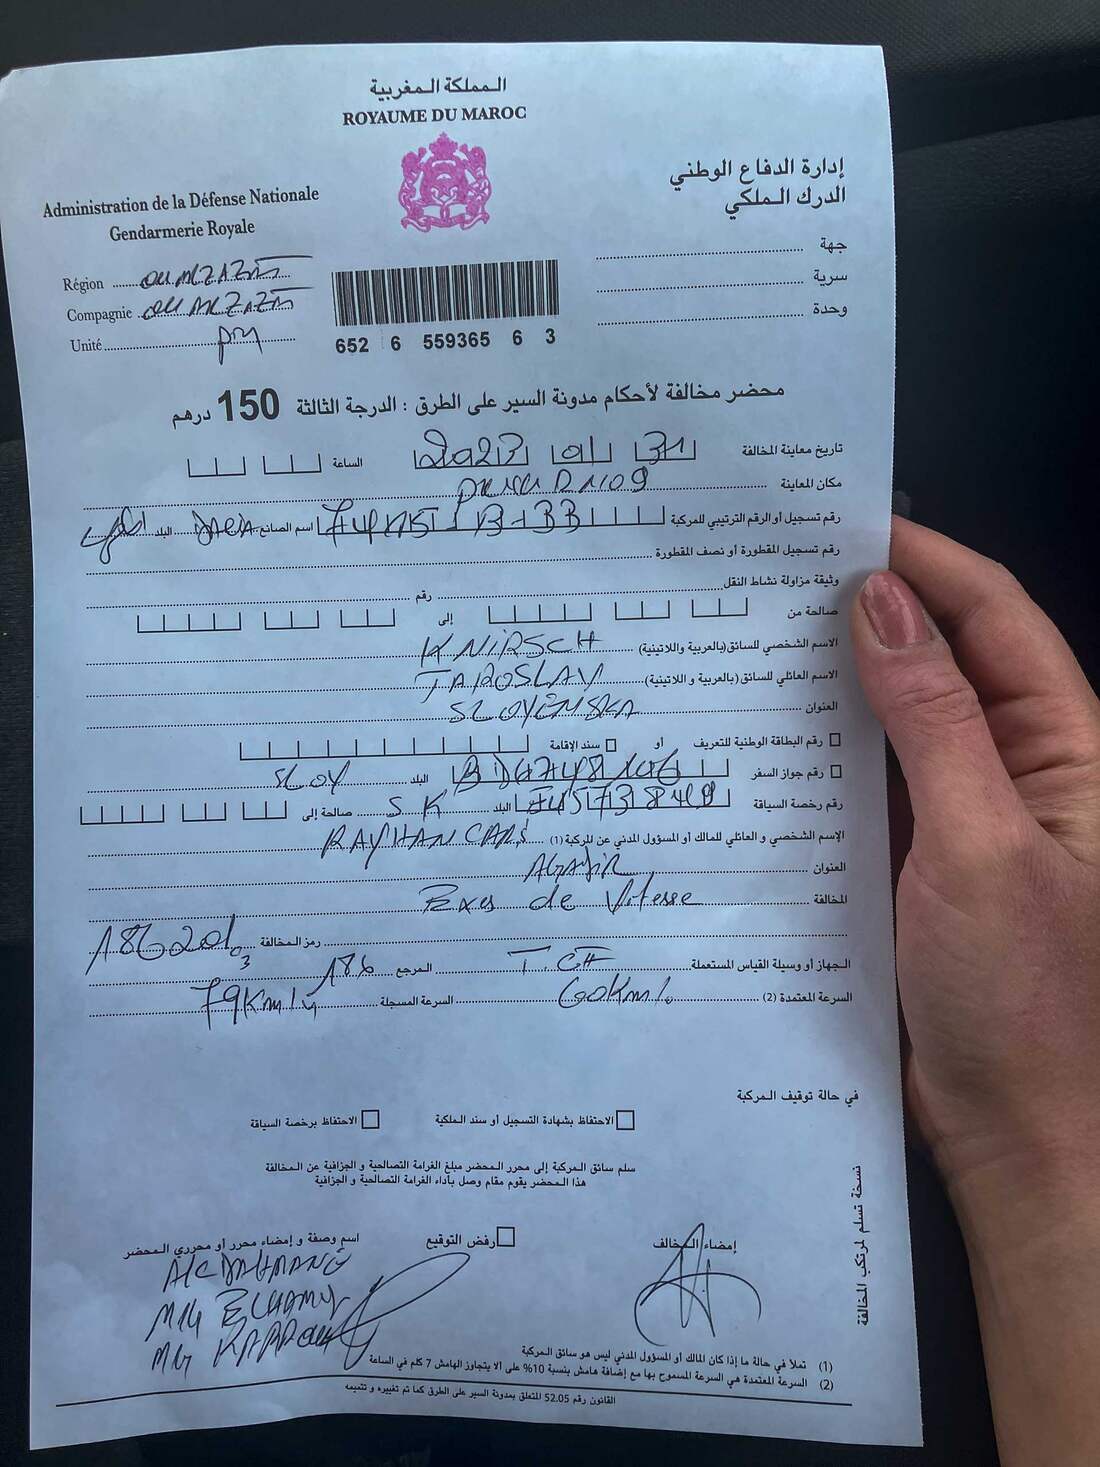 المملكة المغربية
ROYAUME DU MAROC
Administration de la Défense Nationale
Gendarmerie Royale
إدارة الدفاع الوطني
الدرك الملكي
Région
Compagnie
Unité
جهة
سرية
وحدة
652 6 559365 6 3
محضر مخالفة لأحكام مدونة السير على الطرق : الدرجة الثالثة 150 درهم
تاريخ معاينة المخالفة 2023 01 31 الساعة
مكان المعاينة
رقم تسجيل أو الرقم الترتيبي للمركبة اسم الصانع DACIA البلد
رقم تسجيل المقطورة أو نصف المقطورة
وثيقة مزاولة نشاط النقل رقم
صالحة من إلى
الاسم الشخصي للسائق (بالعربية واللاتينية) KNIRSCH
الاسم العائلي للسائق (بالعربية و اللاتينية) JAROSLAV
العنوان SLOVENSKA
رقم البطاقة الوطنية للتعريف أو سند الإقامة
رقم جواز السفر البلد SLOV
رقم رخصة السياقة البلد SK صالحة إلى
الإسم الشخصي و العائلي للمالك أو المسؤول المدني عن المركبة (1) RAYHAN CARS
العنوان AGADIR
المخالفة Exes de Vitesse
رمز المخالفة 186201 03
الجهاز أو وسيلة القياس المستعملة المرجع 186
السرعة المعتمدة (2) 60Km/h السرعة المسجلة 79Km/h
في حالة توقيف المركبة
الاحتفاظ بشهادة التسجيل أو سند الملكية الاحتفاظ برخصة السياقة
سلم سائق المركبة إلى محرر المحضر مبلغ الغرامة التصالحية و الجزافية عن المخالفة
هذا المحضر يقوم مقام وصل بأداء الغرامة التصالحية و الجزافية
إمضاء المخالف رفض التوقيع اسم وصفة و إمضاء محرر أو محرري المحضر
نسخة تسلم لمرتكب المخالفة
(1) تملأ في حالة ما إذا كان المالك أو المسؤول المدني ليس هو سائق المركبة
(2) السرعة المعتمدة هي السرعة المسموح بها مع إضافة هامش بنسبة 10% على الا يتجاوز الهامش 7 كلم في الساعة
القانون رقم 52.05 المتعلق بمدونة السير على الطرق كما تم تغييره و تتميمه